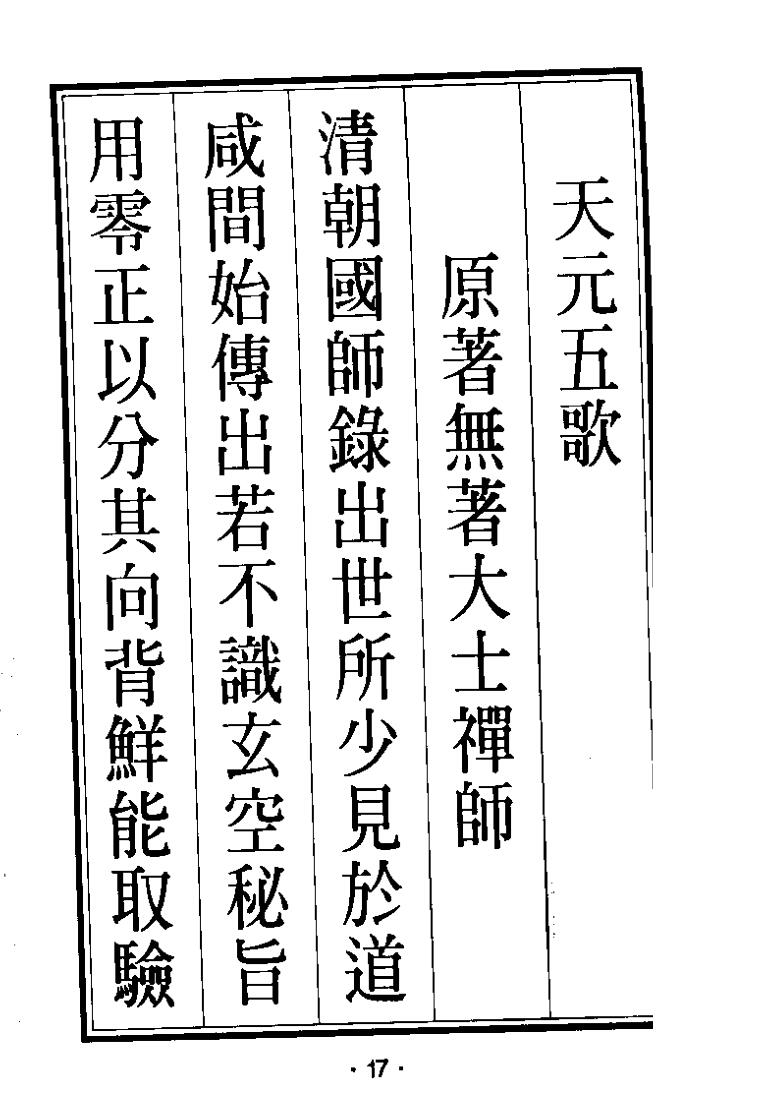 天元五歌
原著無著大士禪師
清朝國師錄出世所少見於道
咸間始傳出若不識玄空秘旨
用零正以分其向背鮮能取驗
·17·